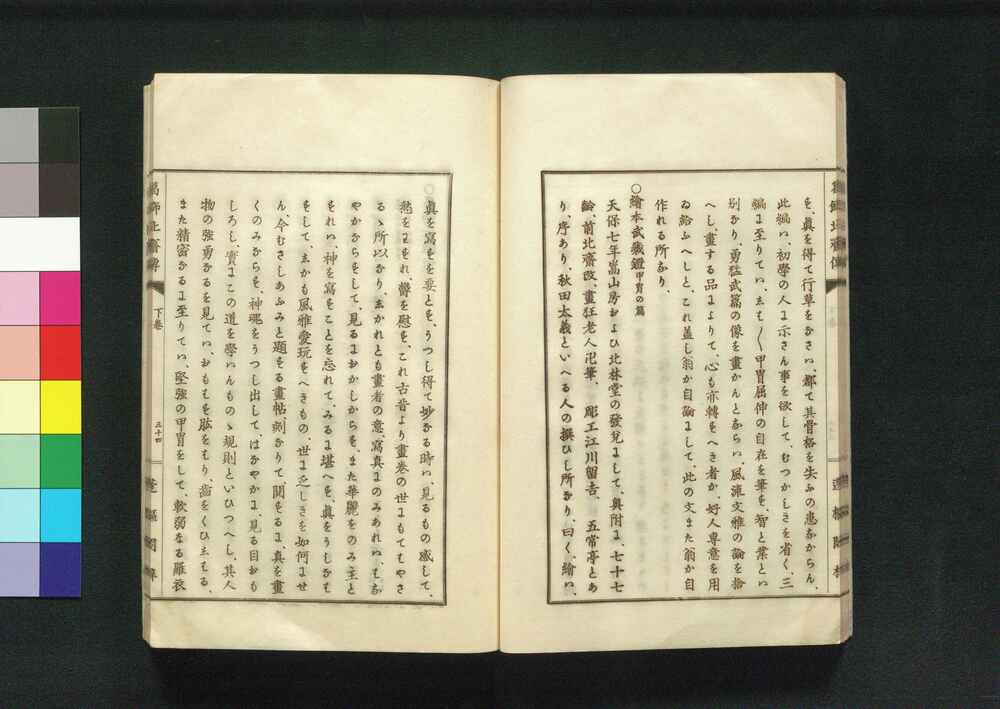 を、眞を得て行草をなさバ、都て其骨格を失ふの患なからん、
此編ハ、初學の人に示さん事を欲して、むつかしきを省く、三
編に至りてハ、えも〳〵甲冑屈伸の自在を筆を、智と業とハ
別なり、勇猛武篇の像を畫かんとならバ、風流文雅の論を捨
へし、畫する品よりて、心も亦轉をへき者か、好人専意を用
ゐ給ふへしと、これ盖し翁か自論にして、此の文また翁か自
作れる所なり、
○繪本武藏鐙甲冑の篇
天保七年嵩山房および北林堂の發兌にして、奥附に、七十七
齡、前北齋改、畫狂老人卍筆、彫工江川留吉、五常亭とあ
り、序あり、秋田太義といへる人の撰ひし所なり、曰く、繪ハ、
眞を寫をを要とを、うつし得て妙なる時ハ、見るもの感して、
愁をわをれ、欝を慰を、これ古昔より畫卷の世にもてもやさ
るゝ所以なり、えかれとも畫者の意、寫眞にのみあれバ、もな
やかならをして、見るにおかしからを、また華麗をのみ主と
をれバ、神を寫をことを忘れて、みるに堪へを、眞をうしなも
をして、えかも風雅愛玩をへきもの、世に乏しきを如何にせ
ん、今むさしあふみと題をる畫帖、刻なりて、閲をるに、眞を畫
くのみならを、神魂をうつし出して、はなやかに、見る目おも
しろし、實にこの道を學ハんものゝ規則といひつへし、其人
物の強勇なるを見てハ、おもえを肱をもり、齒をくひえもる、
また精密なるに至りてハ、堅強の甲冑をして、軟弱なる羅衣
下卷
三十四